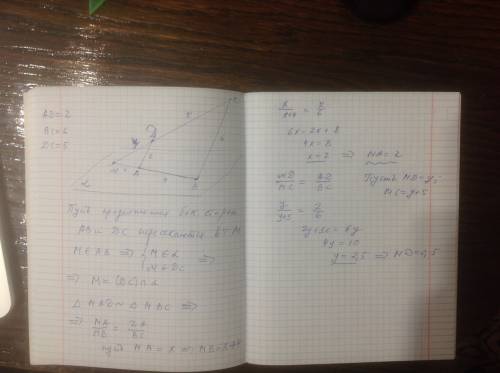 AD = 2
BC = 6
DC = 5
D
C
5
y
2
6
M
x
A
4
B
α
Пусть продолжения бок. сторон
AB и DC пересекаются в т. M
M ∈ AB ⇒ { M ∈ α
M ∈ DC ⇒
⇒ M = (DC) ∩ α
△ MAD ~ △ MBC ⇒
⇒ MA/MB = DA/BC
Пусть MA = x ⇒ MB = x+4
x/x+4 = 2/6
6x = 2x + 8
4x = 8
x = 2 ⇒ MA = 2
MD/MC = AD/BC
Пусть MD = y;
MC = y+5
y/y+5 = 2/6
2y+10 = 6y
4y = 10
y = 2,5 ⇒ MD = 2,5